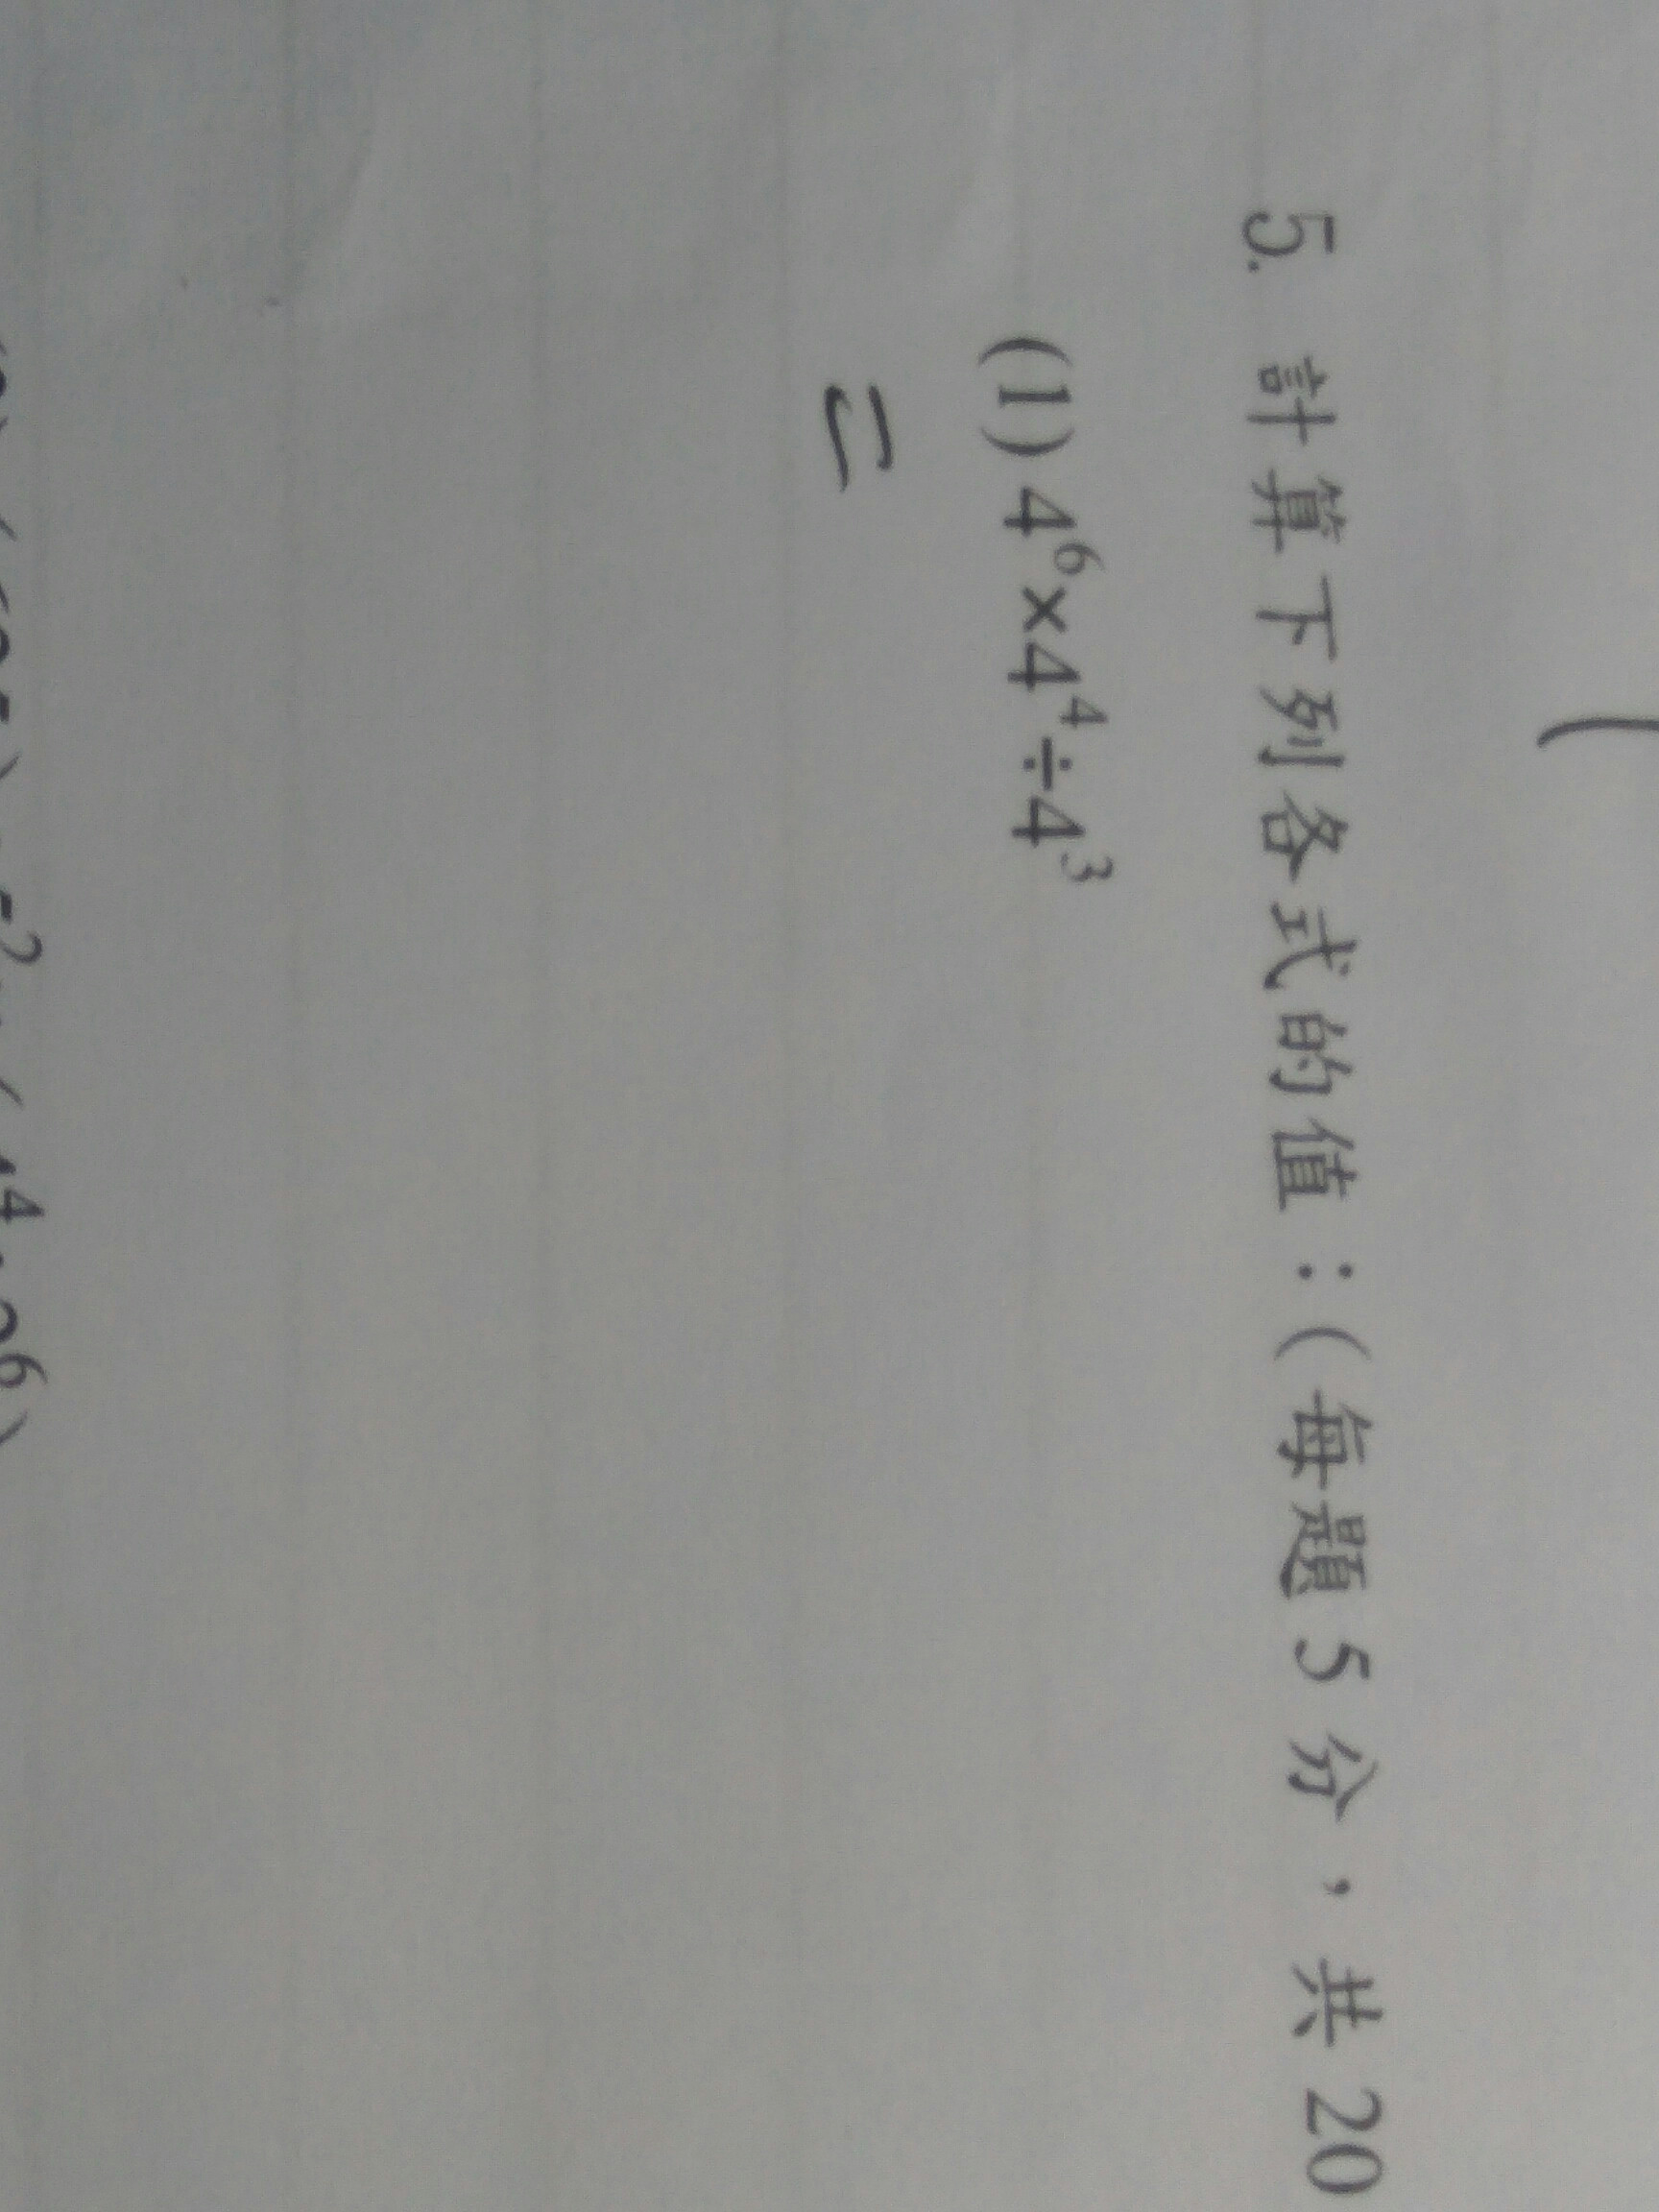 5. 計算下列各式的值：(每題 5 分，共 20
(1) 4⁶×4⁴÷4³
=